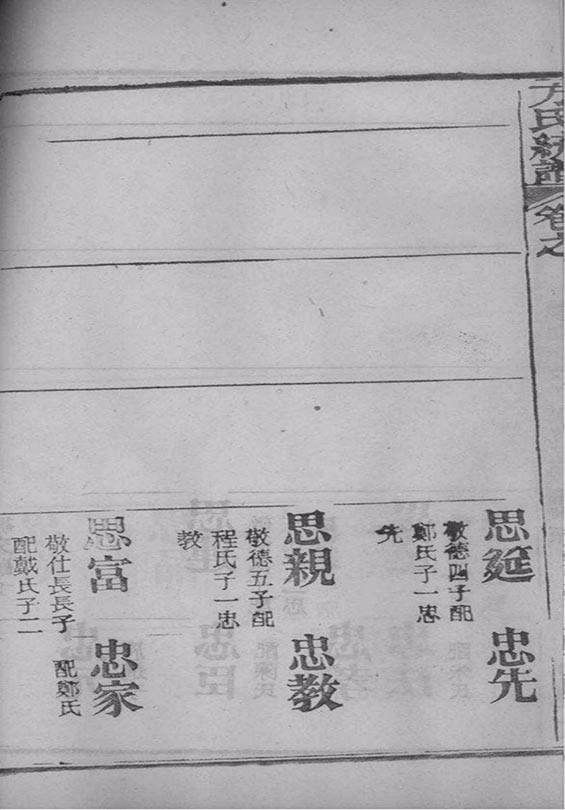 方氏統譜 卷之
思筵
敬德四子配
鄭氏子一忠
先
忠先
思親
敬德五子配
程氏子一忠
教
忠教
思富
敬仕長長子
配戴氏子二
忠家
配鄭氏